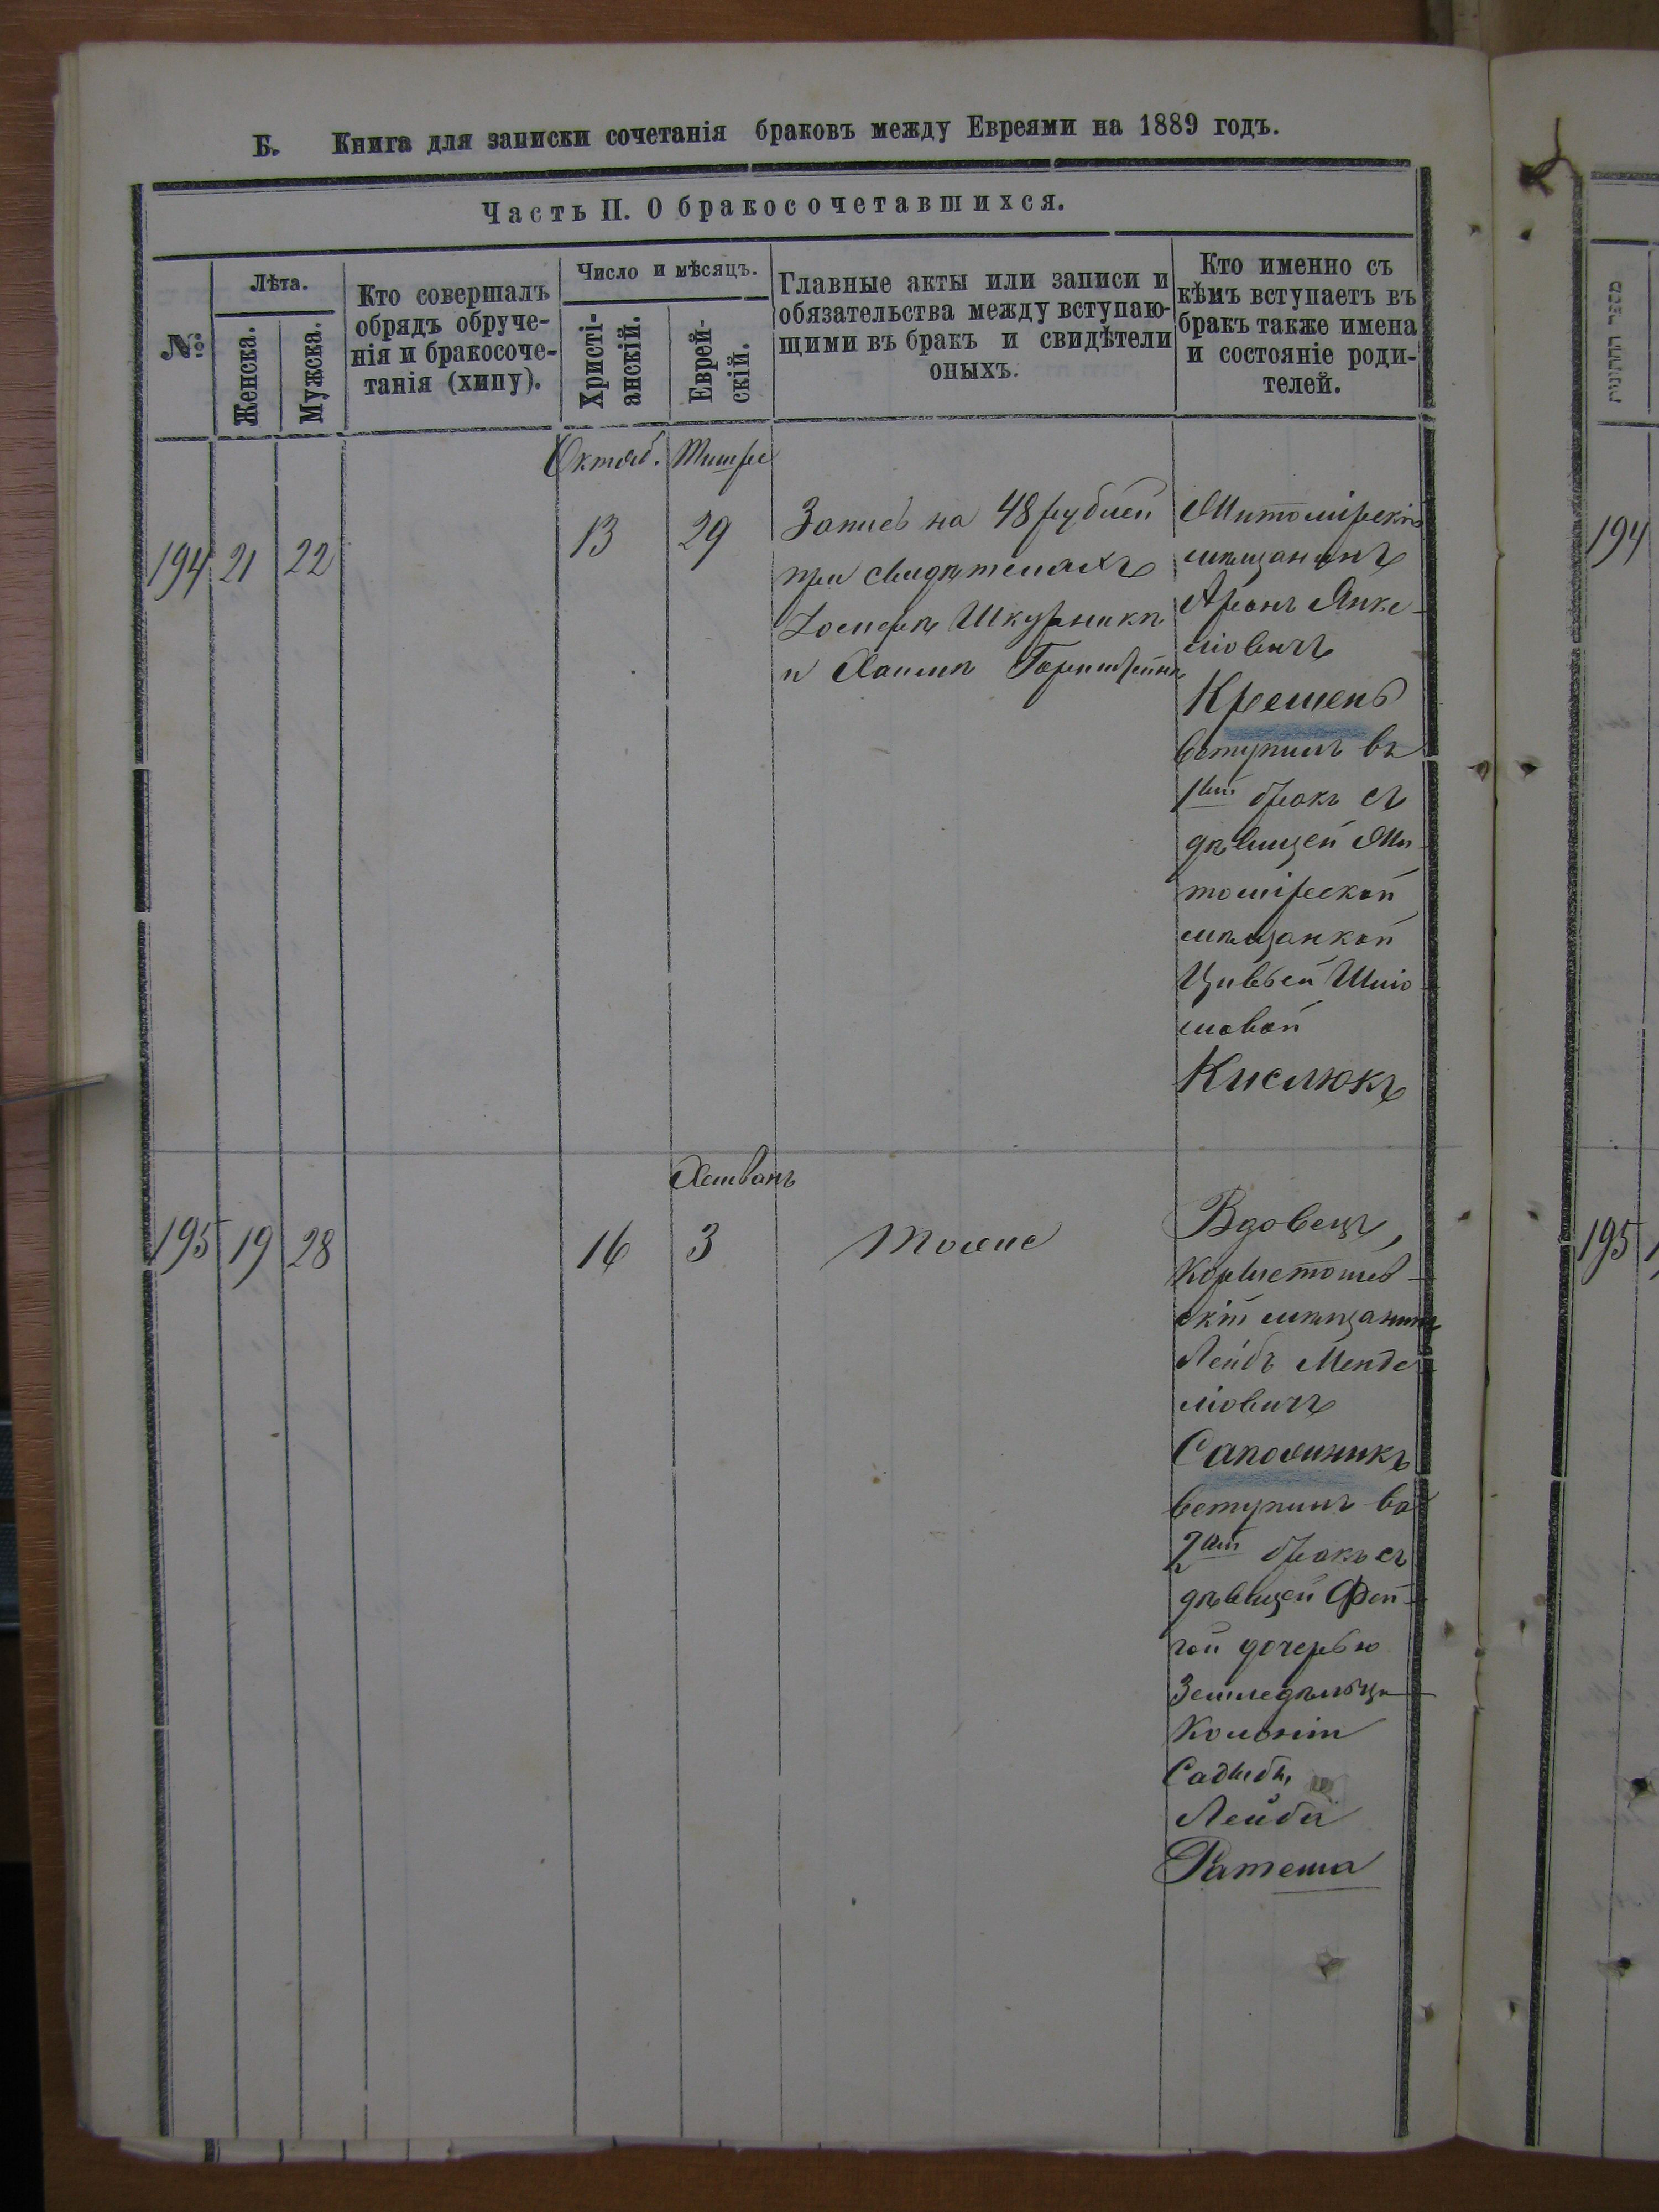 Б. Книга для записки сочетанія браковъ между Евреями на 1889 годъ.
Часть II. О бракосочетавшихся.
№
Лѣта.
Женска.
Мужска.
Кто совершалъ
обрядъ обруче-
нія и бракосоче-
танія (хипу).
Число и мѣсяцъ.
Христі-
анскій.
Еврей-
скій.
Главные акты или записи и
обязательства между вступаю-
щими въ бракъ и свидѣтели
оныхъ.
Кто именно съ
кѣмъ вступаетъ въ
бракъ также имена
и состояніе роди-
телей.
Октяб. Тишре
194 21 22 13 29
Запись на 48 рублей
при свидѣтеляхъ
Шкурникѣ
и Хаимѣ
Житомірскій
мѣщанинъ
Аронъ Янке-
ліовичъ
Кремень
вступилъ въ
1вый бракъ съ
дѣвицей Жи-
томірской
мѣщанкой
Цивьей Шліо-
мовой
Кислюкъ
Хешванъ
195 19 28 16 3
Тоже
Вдовецъ,
Коростышев-
скій мѣщанинъ
Лейбъ Менде-
ліовичъ
Сапожникъ
вступилъ во
2ой бракъ съ
дѣвицей Фей-
гой дочерью
Земледѣльца
Колоніи
Садыбы
Лейбы
194
195